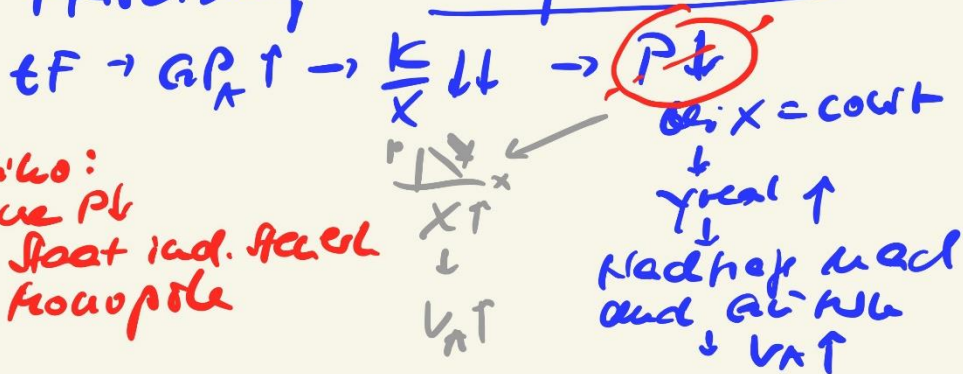 tF → GP_A ↑ → K/X ↓↓ → P↓
bei X = const
↓
Yreal ↑
↓
Nachfrage nach
and. Gütern
↓ V_A ↑
P
x
X ↑
↓
V_A ↑
P↓
Staat ind. Steuern
Monopole